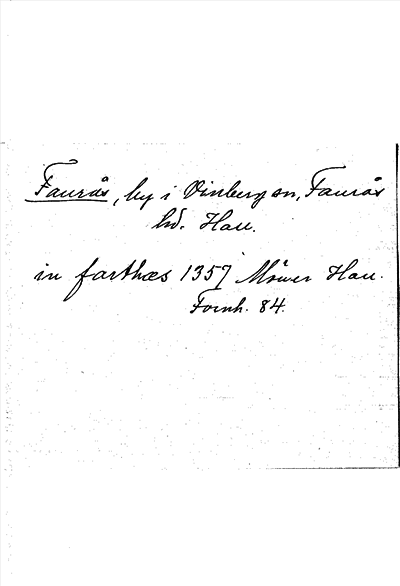 Faurås, by i Vinberg sn, Faurås
hd. Hall.
in farthæs 1357 Möwer Hall.
Fornh. 84.